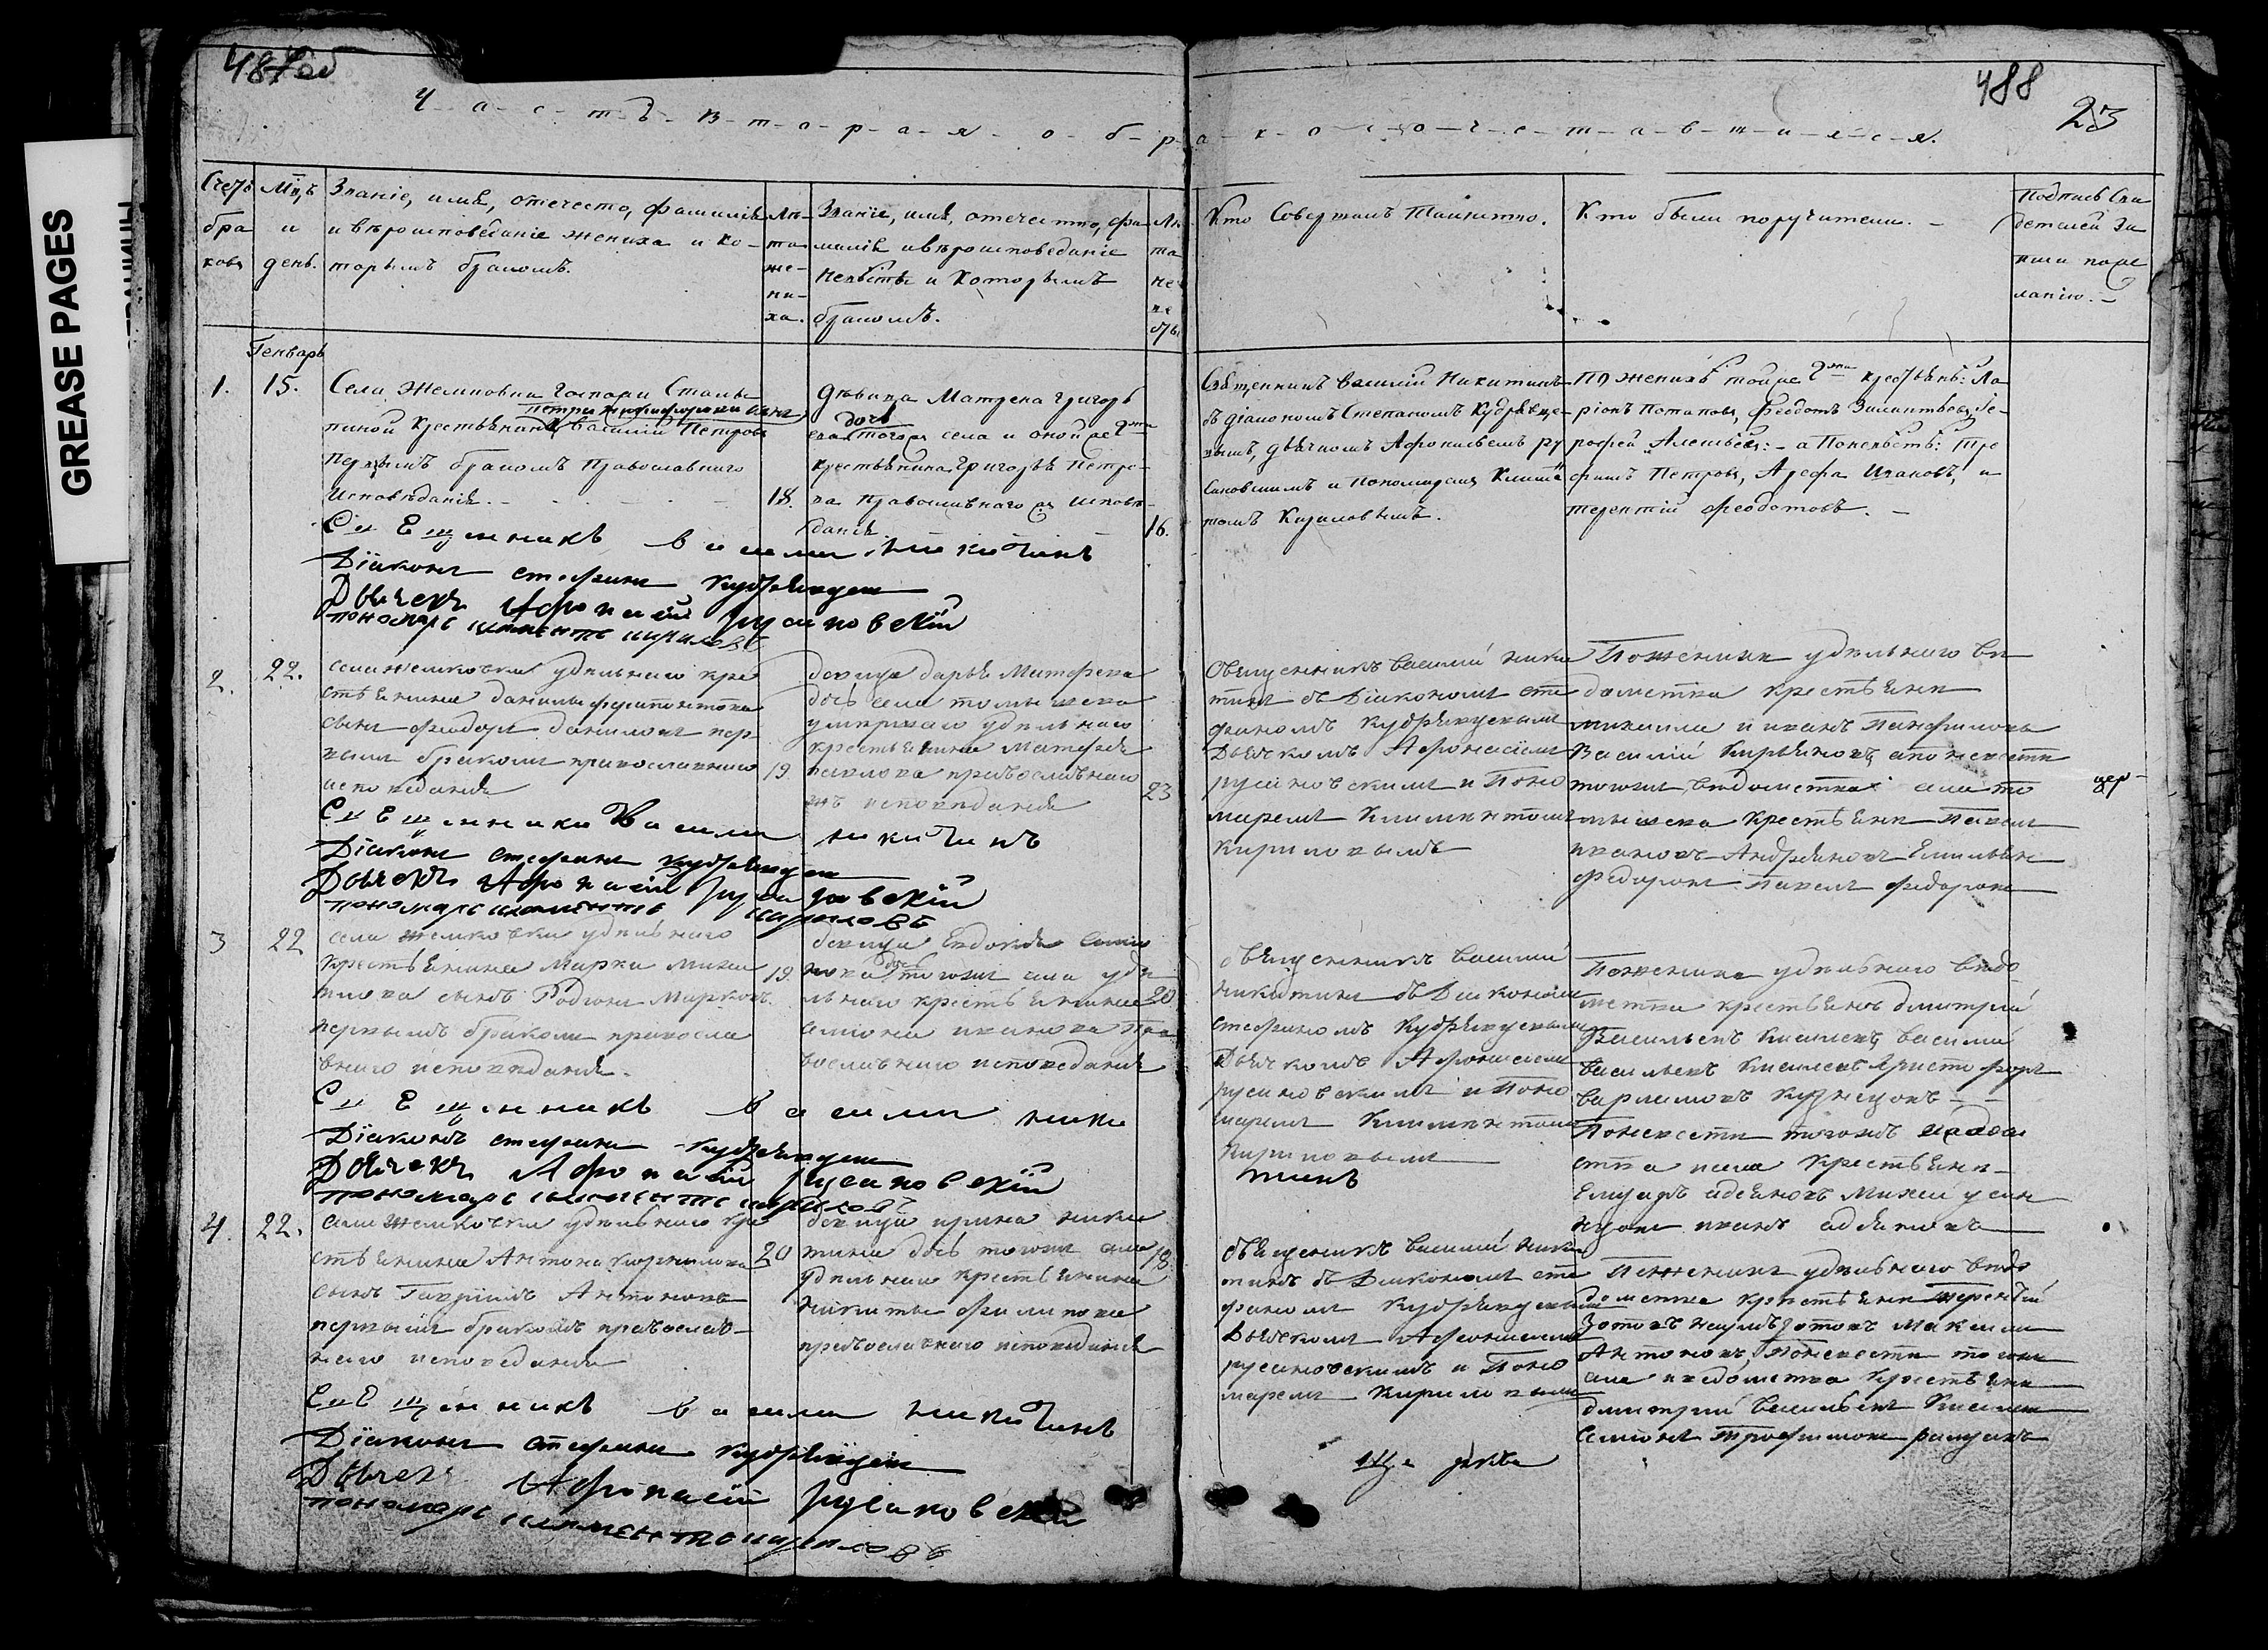 487об
488
23
Часть вторая о бракосочетавшихся.
Счетъ бра ковъ
Мц,ъ и день.
Званіе, имя, отечество, фамилія
и вѣроисповѣданіе жениха и ко-
торымъ бракомъ.
Лѣ-
та
же-
ни-
ха.
Званіе, имя, отечество, фа-
милія и вѣроисповѣданіе
невѣсты и которымъ
бракомъ.
Лѣ
та
не
ве
сты
Кто Совершалъ Таинство.
Кто были поручители. -
Подпись Сви
детелей За
писи по же
ланію. -
Генварь
1.
15.
Села Жемковки Госпожи
крестьянинъ Василій Петровъ
Первымъ бракомъ Православнаго
Исповѣданія. -
18.
Дѣвица Матрена Григорь
ева дочь тогожъ села и оной же Гжи
крестьянина Григорья Петро-
ва православнаго жъ исповѣ-
данія
16.
Священникъ Василій Никитинъ
съ діакономъ Степаномъ Кудрявце-
вымъ, дьячкомъ Афонасьемъ Ру
сановскимъ и пономаремъ Климен
томъ Кириловымъ.
По женихѣ той же Гжи крестьянѣ: Ла
ріонъ Потаповъ, Феодотъ
рофей Алексѣевъ: - а По невѣстѣ: Тро
фимъ Петровъ, Арефа Ивановъ, и
терентій Феодотовъ. -
Священникъ Василий Никитинъ
Діаконъ стефанъ Кудрявцевъ
Дьячекъ Афонасій Русановскій
пономарь климентъ кириловъ
2.
22.
села жемковки удѣльнаго кре
стьянина данилы
сынъ феодоръ даниловъ пер
вымъ бракомъ православнаго
исповедания
19.
девица дарья Матфева
дочь села томышева
умершаго удѣльнаго
крестьянина Матфея
павлова православнаго
жъ исповедания
23
Священникъ василий ники
тинъ съ Діакономъ сте
фаномъ Кудрявцевымъ
Дьячкомъ Афонасіемъ
русановскимъ и Поно
маремъ Климентомъ
кириловымъ
По женихѣ удѣльнаго ве
домства крестьяне
михаила и иванъ Панфиловы
Василій Кирьяновъ, а по невести
тогожъ ведомства села то
мышева Крестьяне Павелъ
ивановъ Андреяновъ Емельянъ
Федоровъ Павелъ федоровъ
цер-
Священникъ Василий Никитинъ
Діаконъ стефанъ Кудрявцевъ
Дьячекъ Афонасій Русановскій
пономарь климентъ кириловъ
3
22
села жемковки удѣльнаго
Крестьянина Марки михаи
лова сынъ Родионъ Марковъ
первымъ бракомъ правосла
внаго исповедания.
19.
девица Евдокия семио
нова дочь тогожъ села удѣ
льнаго крестьянина
семиона иванова пра
вославнаго исповедания
20
Священникъ василий
никитинъ съ Диакономъ
стефаномъ Кудрявцевымъ
Дьячкомъ Афонасиемъ
русановскимъ и Поно
маремъ Климентомъ
Кириловымъ
По жениха удѣльнаго ведо
мства крестьянъ дмитрий
Васильевъ Киселевъ, василий
васильевъ Киселевъ Христофоръ
варламовъ Кузнецовъ -
По невести тогожъ ведом
ства села Крестьяне -
Елизаръ авдеяновъ
иванъ
Священникъ Василий Ники
тинъ
Діаконъ стефанъ Кудрявцевъ
Дьячекъ Афонасій Русановскій
пономарь климентъ кириловъ
4.
22.
села Жемковки удѣльнаго кре
стьянина Антона Корнилова
сынъ Гаврилъ Антоновъ
первымъ бракомъ православ-
наго исповедания
20
девица ирина ники
тина дочь тогожъ села
удѣльнаго крестьянина
никиты филипова
православнаго исповедания
18.
Священникъ василий ники
тинъ съ Диакономъ сте
фаномъ Кудрявцевымъ
Дьячкомъ Афонасиемъ
русановскимъ и Поно
маремъ Кириловымъ
По женихѣ удѣльнаго ведо
домства крестьяне терентий
Зотовъ наумъ Зотовъ Максимъ
Антоновъ, По невести тогожъ
села ведомства Крестьяне
дмитрий васильевъ Киселевъ
Семионъ трофимовъ
Священникъ Василий Никитинъ
Діаконъ стефанъ Кудрявцевъ
Дьячекъ Афонасій Русановскій
пономарь климентъ кириловъ
GREASE PAGES